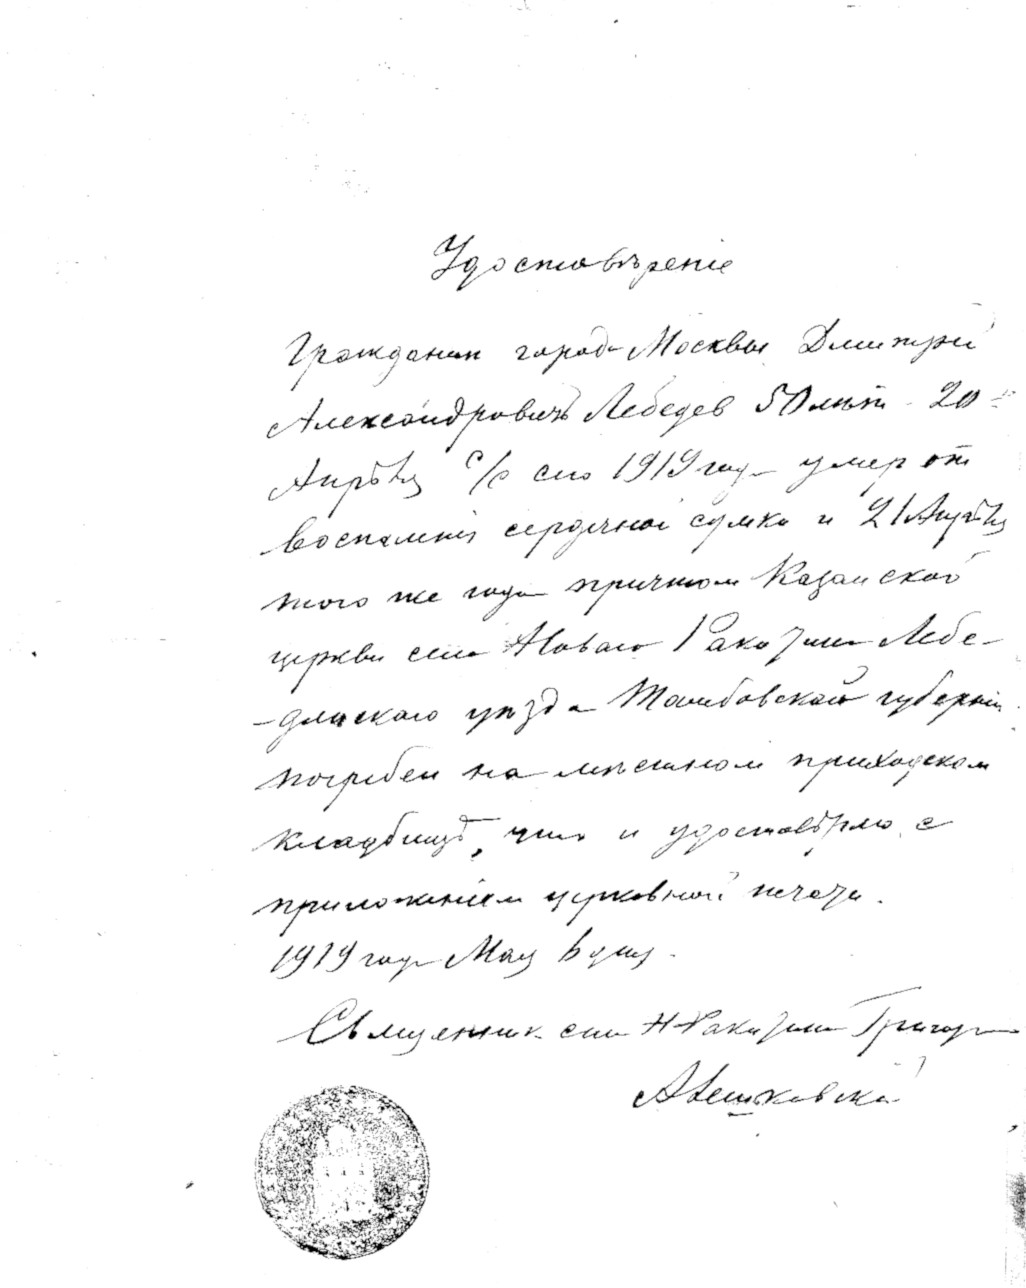 Удостовѣренiе
Гражданин города Москвы Дмитрiй
Александровичъ Лебедев 50 лѣт 20
Апрѣля с/г 1919 года умер от
воспаленiя сердечной сумки и 21 Апрѣля
того же года причтом Казанской
церкви села Новаго Ракитина Лебе-
-дянскаго уѣзда Тамбовской губернiи
погребен на мѣстном приходском
кладбищѣ, что и удостовѣряю с
приложенiем церковной печати.
1919 года Мая 6 дня.
Священник села Н-Ракитина Григор